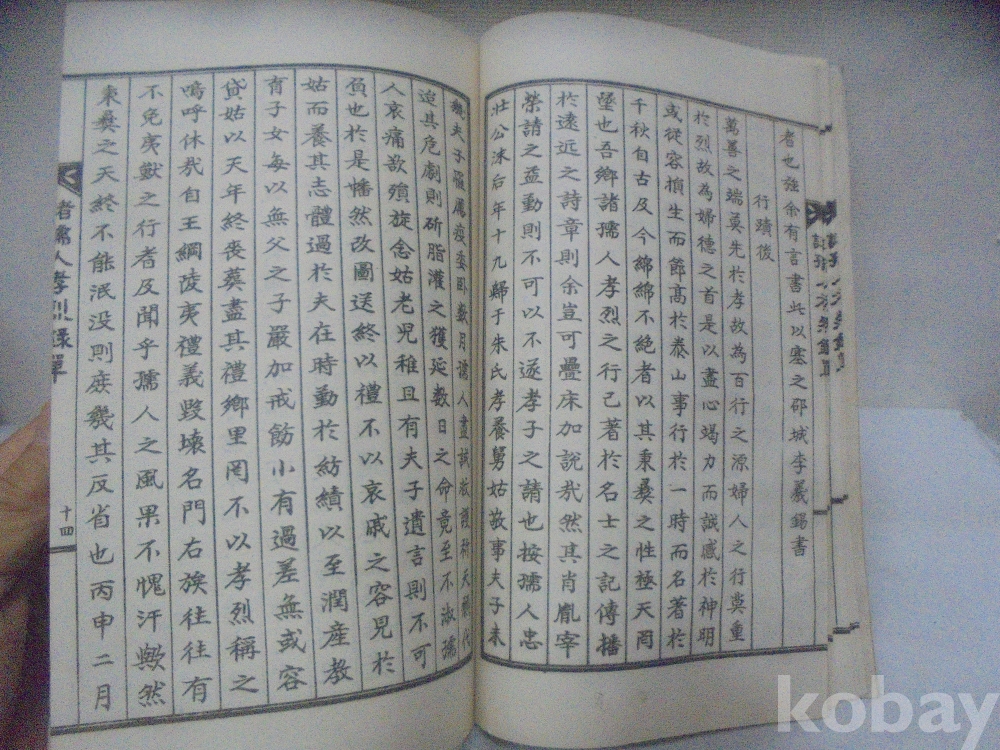 者也詮余有言書此以塞之邵城李羲錫書
行蹟後
萬善之端莫先於孝故為百行之源婦人之行莫重
於烈故為婦德之首是以盡心竭力而誠感於神明
或從容損生而節高於泰山事行於一時而名著於
千秋自古及今綿綿不絶者以其秉彛之性極天罔
墜也吾鄉諸孺人孝烈之行己著於名士之記傳播
於遠近之詩章則余豈可疊床加說哉然其肖胤宰
榮請之益勤則不可以不遂孝子之請也按孺人忠
壮公沫后年十九歸于朱氏孝養舅姑敬事夫子未
幾夫子罹厲疫委卧数月諸人盡試救護祈天願代
迨其危劇則斫脂灌之獲延数日之命竟至不淑孺
人哀痛欲殞旋念姑老児稚且有夫子遺言則不可
負也於是幡然改圖送終以禮不以哀戚之容見於
姑而養其志體過於夫在時勤於紡績以至潤産教
育子女每以無父之子嚴加戒飭小有過差無或容
貸姑以天年終丧葬盡其禮鄉里罔不以孝烈稱之
嗚呼休哉自王綱陵夷禮義毀壊名門右族往往有
不免夷獸之行者及聞乎孺人之風果不愧汗歟然
秉彛之天終不能泯没則庶幾其反省也丙申二月
諸孺人孝烈録單
十四
kobay